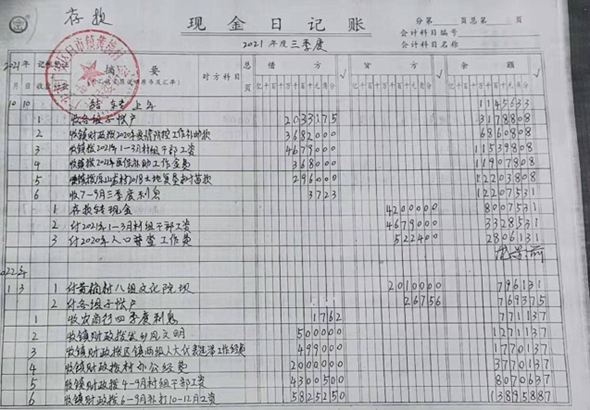 存款
现金日记账
分第 页总第 页
会计科目编号
会计科目名称
2021年度三季度
2021年 摘要 对方科目 总页 借方 √ 贷方 √ 余额 √
月 日
亿千百十万千百十元角分 亿千百十万千百十元角分 亿千百十万千百十元角分
10 10 结转上年 1145633
1 收各组子帐户 2033175 3178808
2 收镇财政拨2020年疫情防控工作补助款 3682000 6860808
3 收镇拨2021年1-3月村组干部工资 4679000 11539808
4 收镇拨2021年医保补助工作金费 368000 11907808
5 296000 12203808
6 收7-9月三季度利息 3723 12207531
1 存款转现金 4200000 8007531
2 付2021年1-3月村组干部工资 4679000 3328531
3 付2020年人口普查工作费 522400 2806131
2022年
1 3 1 付黄桷村八组文化院坝 2010000 796131
2 付各组子帐户 26756 769375
1 收农商行四季度利息 1762 771137
2 收镇财政拨乡风文明 500000 1271137
3 收镇财政拨区镇两级人大代表工作经费 499000 1770137
4 收镇财政拨村办公经费 2000000 3770137
5 收镇财政拨4-9月村组干部工资 4300500 8070637
6 收镇财政拨6-9月补打10-12月工资 5825250 13895887